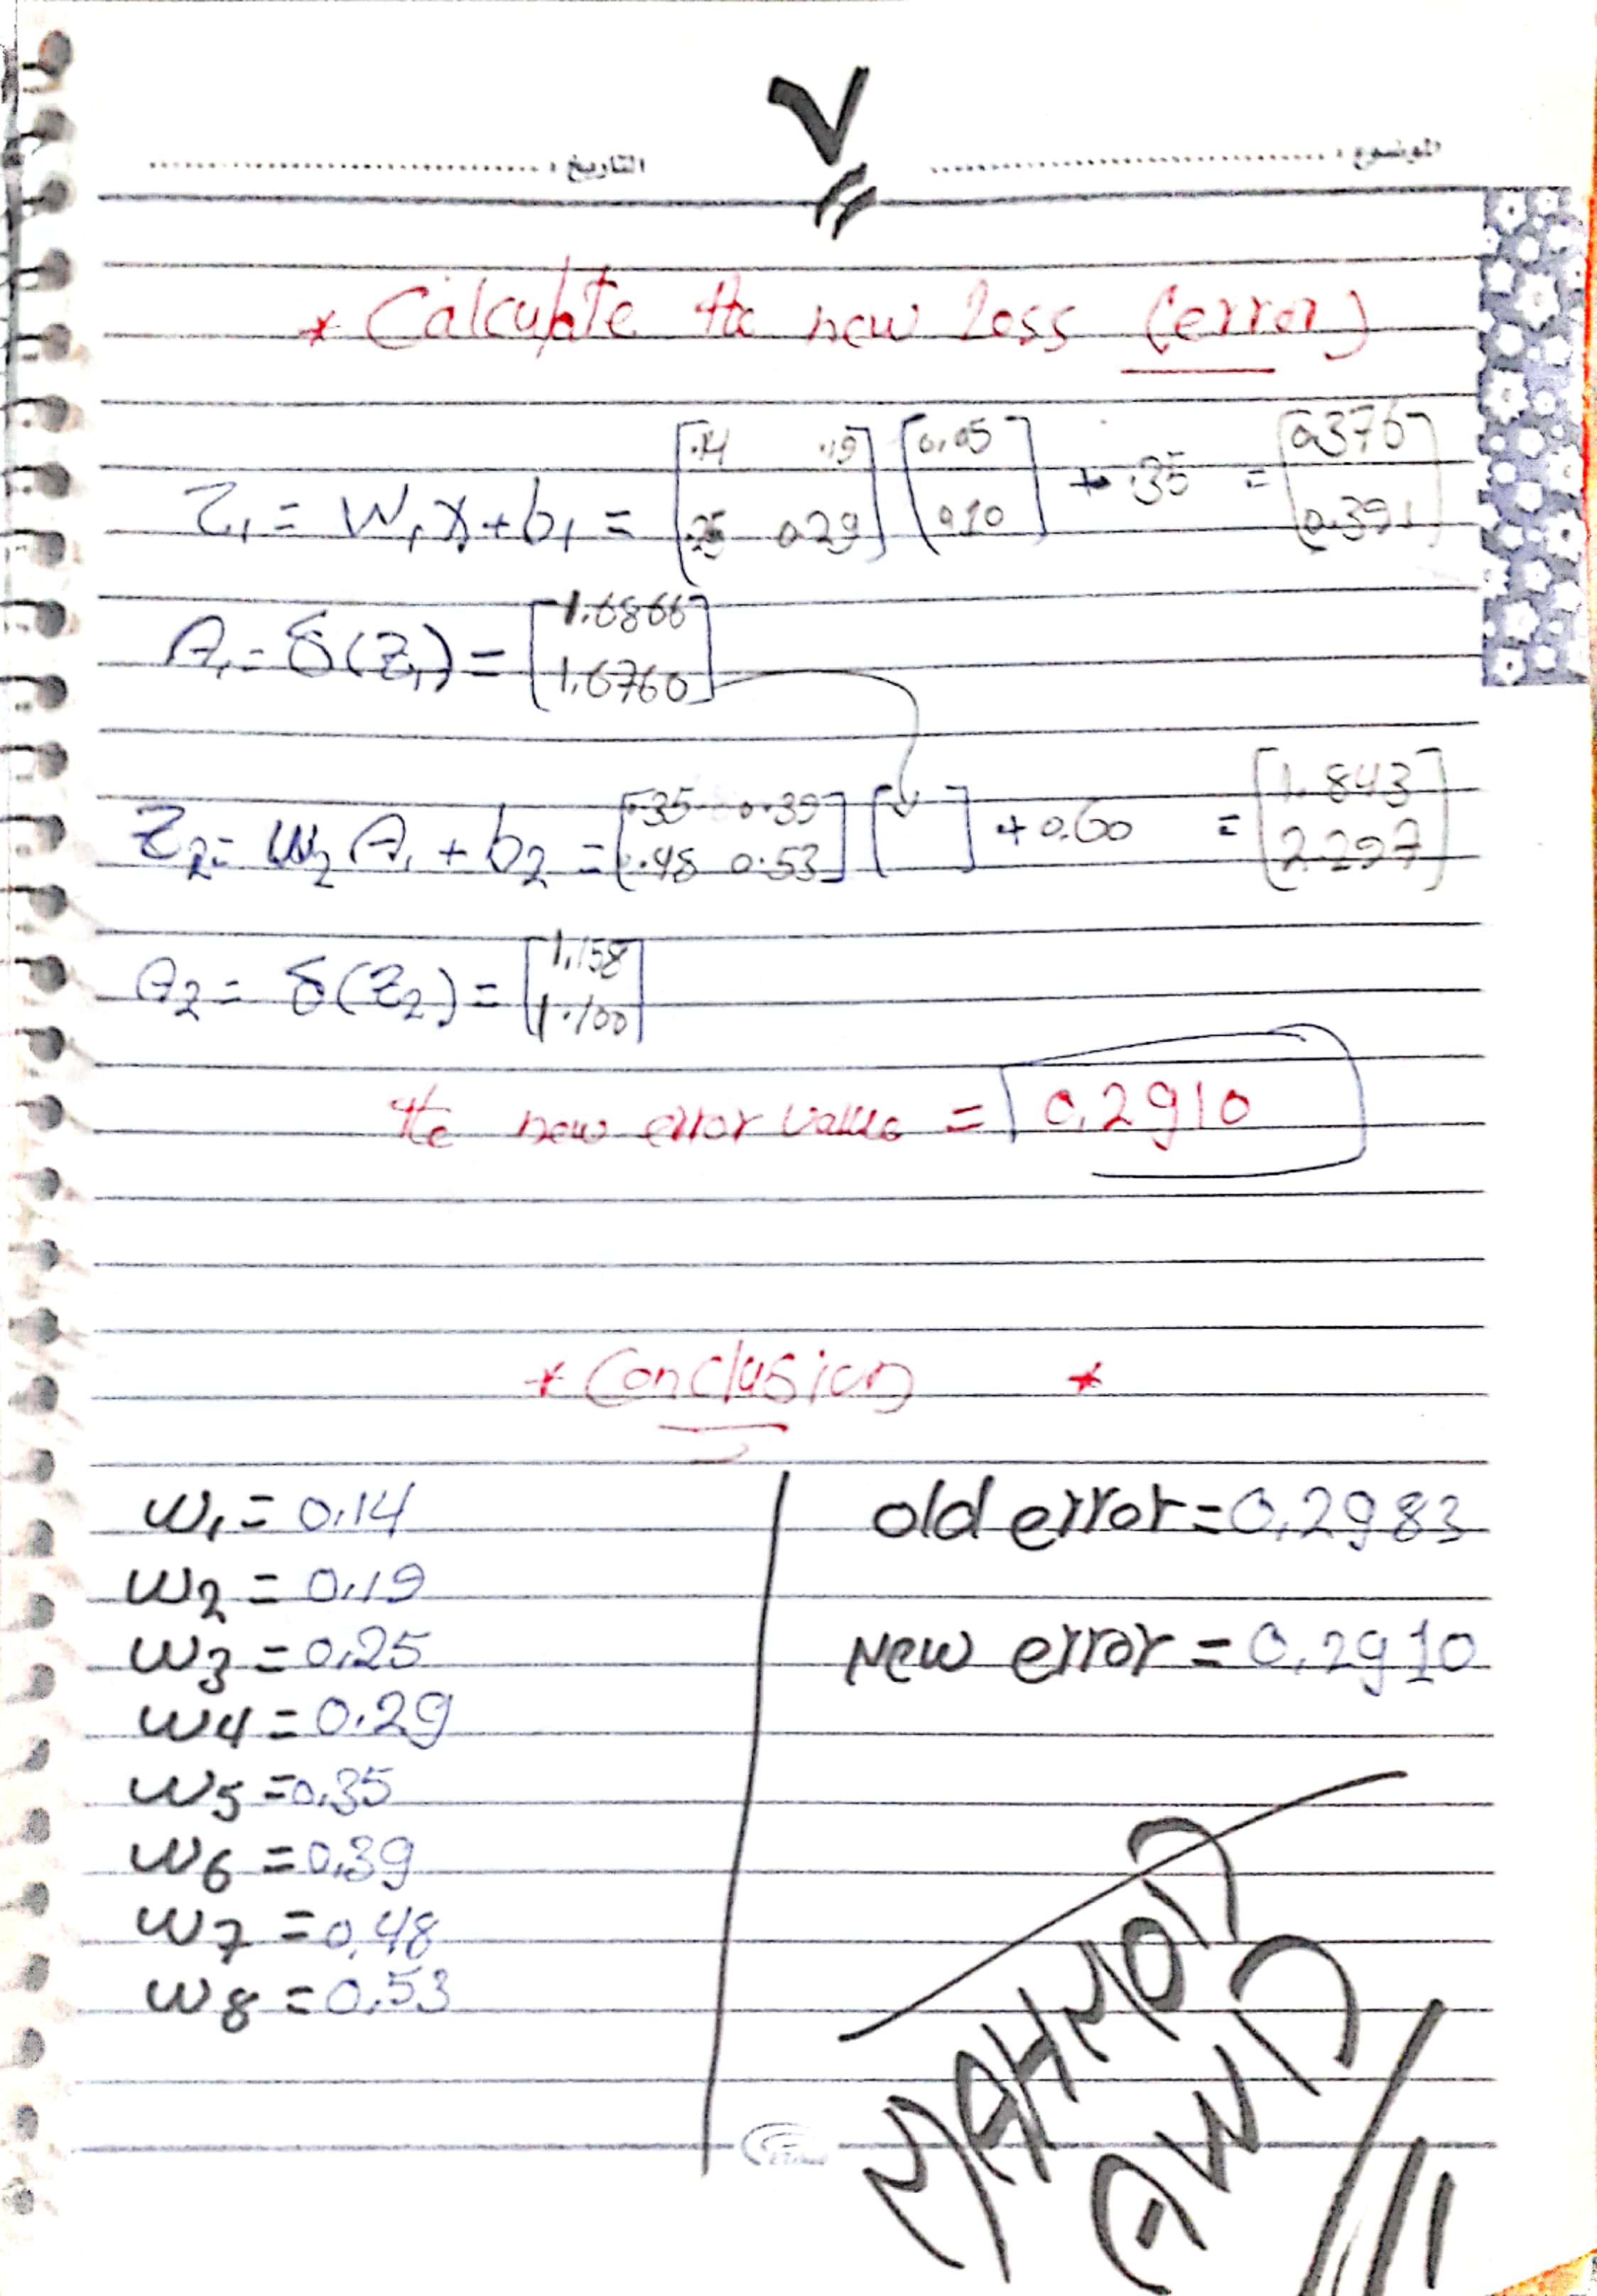 ٧
الموضوع : التاريخ :
* Calculate the new loss (error)
Z₁ = W₁X + b₁ = [.14 .19 .25 0.29] [0.05 0.10] + .35 = [0.376 0.391]
A₁ = δ(Z₁) = [1.6866 1.6760]
Z₂ = W₂ A₁ + b₂ = [.35 0.39 .48 0.53] [ ] + 0.60 = [1.843 2.297]
A₂ = δ(Z₂) = [1.158 1.100]
the new error value = 0.2910
* Conclusion *
w₁ = 0.14
w2 = 0.19
w3 = 0.25
w4 = 0.29
w5 = 0.35
w6 = 0.39
w7 = 0.48
w8 = 0.53
old error = 0.2983
New error = 0.2910
MAHMOD
AWD